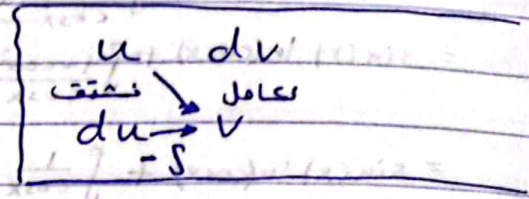 u dv
نشتق نكامل
du → v
-∫